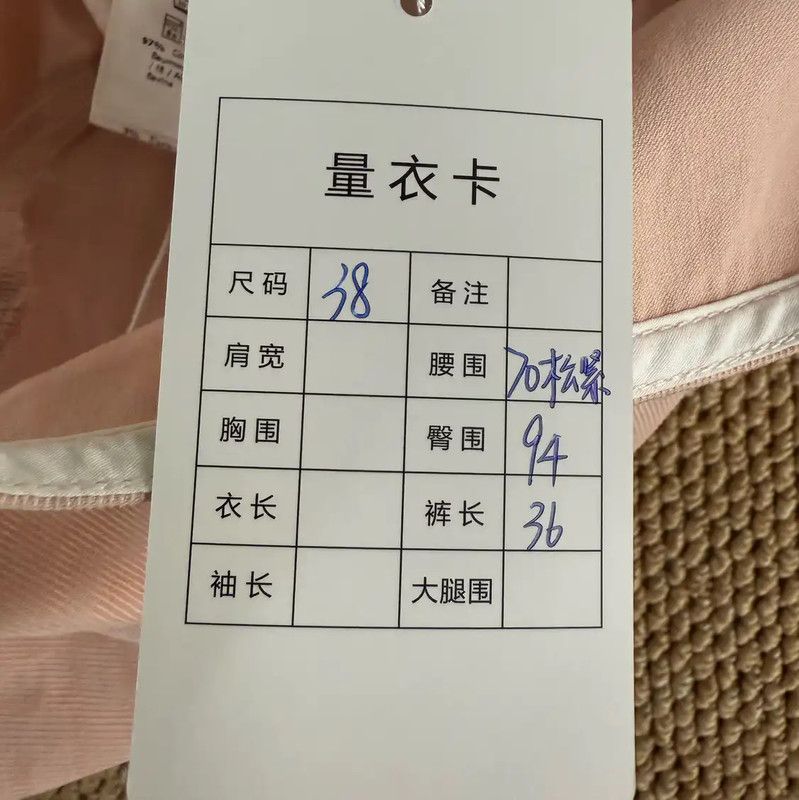 97% Co
/ 18 / A
量衣卡
尺码 38 备注
肩宽 腰围 70松紧
胸围 臀围 94
衣长 裤长 36
袖长 大腿围